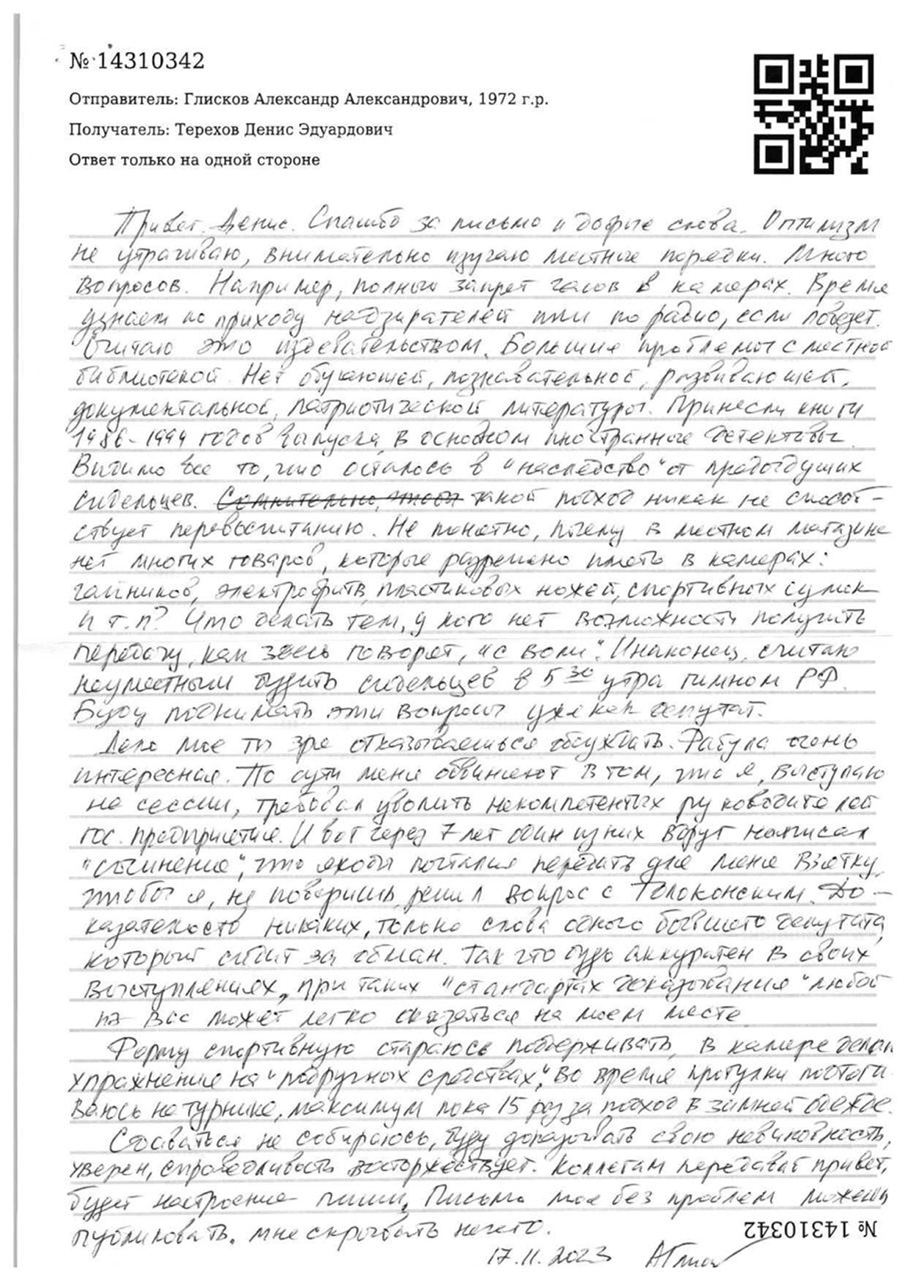 № 14310342
Отправитель: Глисков Александр Александрович, 1972 г.р.
Получатель: Терехов Денис Эдуардович
Ответ только на одной стороне
Привет, Денис. Спасибо за письмо и добрые слова. Оптимизм
не утрачиваю, внимательно изучаю местные порядки. Много
вопросов. Например, полный запрет часов в камерах. Время
узнаем по приходу надзирателей или по радио, если повезет.
Считаю это издевательством. Большие проблемы с местной
библиотекой. Нет обучающей, познавательной, развивающей,
документальной, патриотической литературы. Принесли книги
1986-1994 годов выпуска, в основном иностранные детективы.
Видимо все то, что осталось в "наследство" от предыдущих
сидельцев. такой подход никак не способ-
ствует перевоспитанию. Не понятно, почему в местном магазине
нет многих товаров, которые разрешено иметь в камерах:
чайников, электробритв, пластиковых ножей, спортивных сумок
и т.п? Что делать тем, у кого нет возможности получить
передачу, как здесь говорят, "с воли". И наконец, считаю
неуместным будить сидельцев в 5 30 утра гимном РФ.
Буду поднимать эти вопросы уже как депутат.
Дело мое ты зря отказываешься обсуждать. Фабула очень
интересная. По сути меня обвиняют в том, что я, выступая
на сессии, требовал уволить некомпетентных руководителей
гос. предприятия. И вот через 7 лет один из них вдруг написал
"сочинение", что якобы пытался передать для меня взятку,
чтобы я, не поверишь, решил вопрос с Толоконским. До-
казательств никаких, только слова одного бывшего депутата,
который сидит за обман. Так что будь аккуратен в своих
выступлениях, при таких "стандартах доказывания" любой
из вас может легко оказаться на моем месте.
Форму спортивную стараюсь поддерживать, в камере делаю
упражнения на "подручных средствах", во время прогулки подтяги-
ваюсь на турнике, максимум пока 15 раз за подход в зимней одежде.
Сдаваться не собираюсь, буду доказывать свою невиновность,
уверен, справедливость восторжествует. Коллегам передавай привет,
будет настроение пиши. Письмо мое без проблем можешь
публиковать, мне скрывать нечего.
№ 14310342
17.11.2023